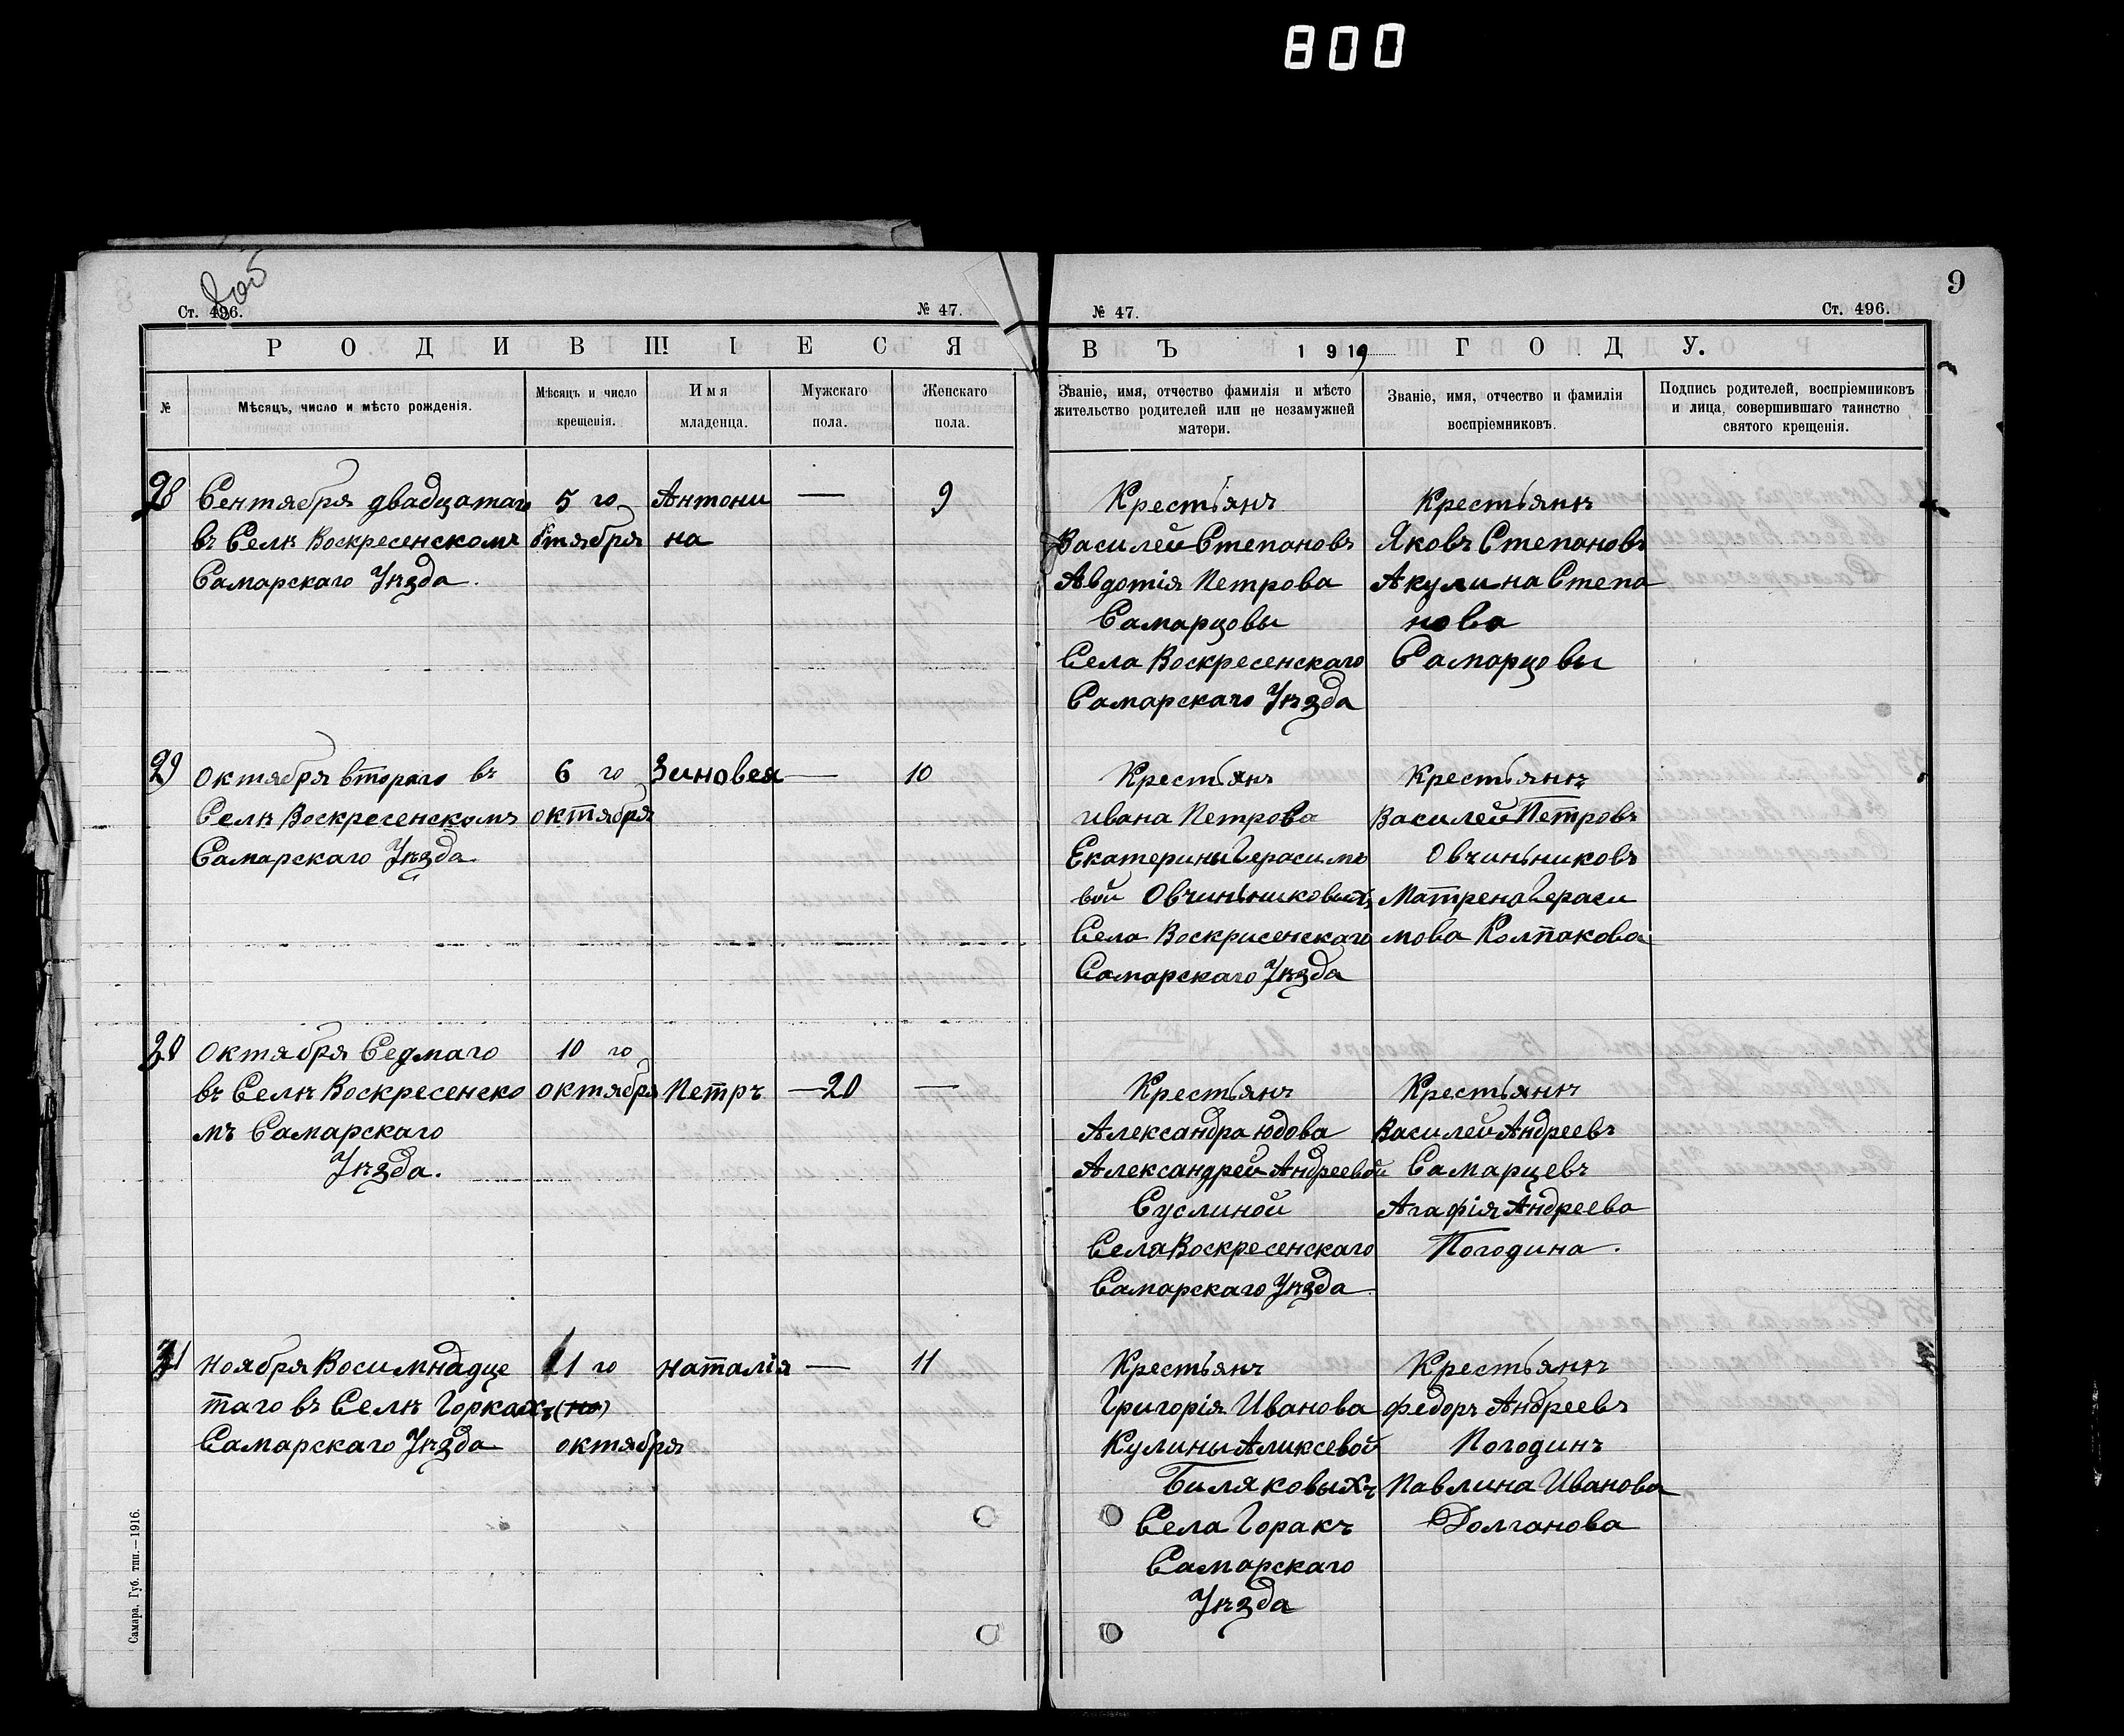 800
9
Ст. 496.
№ 47.
№ 47.
Ст. 496.
РОДИВШІЕСЯ
ВЪ 1919 ГОДУ.
№
Мѣсяцъ, число и мѣсто рожденія.
Мѣсяцъ и число
крещенія.
Имя
младенца.
Мужскаго
пола.
Женскаго
пола.
Званіе, имя, отчество фамилія и мѣсто
жительство родителей или не незамужней
матери.
Званіе, имя, отчество и фамилія
воспріемниковъ.
Подпись родителей, воспріемниковъ
и лица, совершившаго таинство
святого крещенія.
28
Сентября двадцатаго
въ Селѣ Воскресенскомъ
Самарскаго Уѣзда.
5 го
Октября
Антони
на
—
9
Крестьянъ
Василей Степановъ
Авдотія Петрова
Самарцовы
Села Воскресенскаго
Самарскаго Уѣзда
Крестьянѣ
Яковъ Степановъ
Акулина Степа
нова
Самарцовы
29
Октября втораго въ
Селѣ Воскресенскомъ
Самарскаго Уѣзда.
6 го
октября
Зиновея
—
10
Крестьянъ
ивана Петрова
Екатерины Герасимо
вой Овчиньниковыхъ
Села Воскрисенскаго
Самарскаго Уѣзда
Крестьянѣ
Василей Петровъ
Овчиньниковъ
Матрена Гераси
мова Колпакова
30
Октября Седмаго
въ Селѣ Воскресенско
мъ Самарскаго
Уѣзда.
10 го
октября
Петръ
—20
—
Крестьянъ
Александра юдова
Александрей Андреевой
Суслиной
Села Воскресенскаго
Самарскаго Уѣзда
Крестьянѣ
Василей Андреевъ
Самарцевъ
Агафія Андреева
Погодина.
31
Ноября Восимнадце
таго въ Селѣ Горкахъ
Самарскаго Уѣзда
11 го
(но)
октября
наталія
—
11
Крестьянъ
Григорія Иванова
Кулины Аликсевой
Биляковыхъ
Села Горакъ
Самарскаго
Уѣзда
Крестьянѣ
Федоръ Андреевъ
Погодинъ
Павлина Иванова
Долганова
Самара, Губ. тип.—1916.